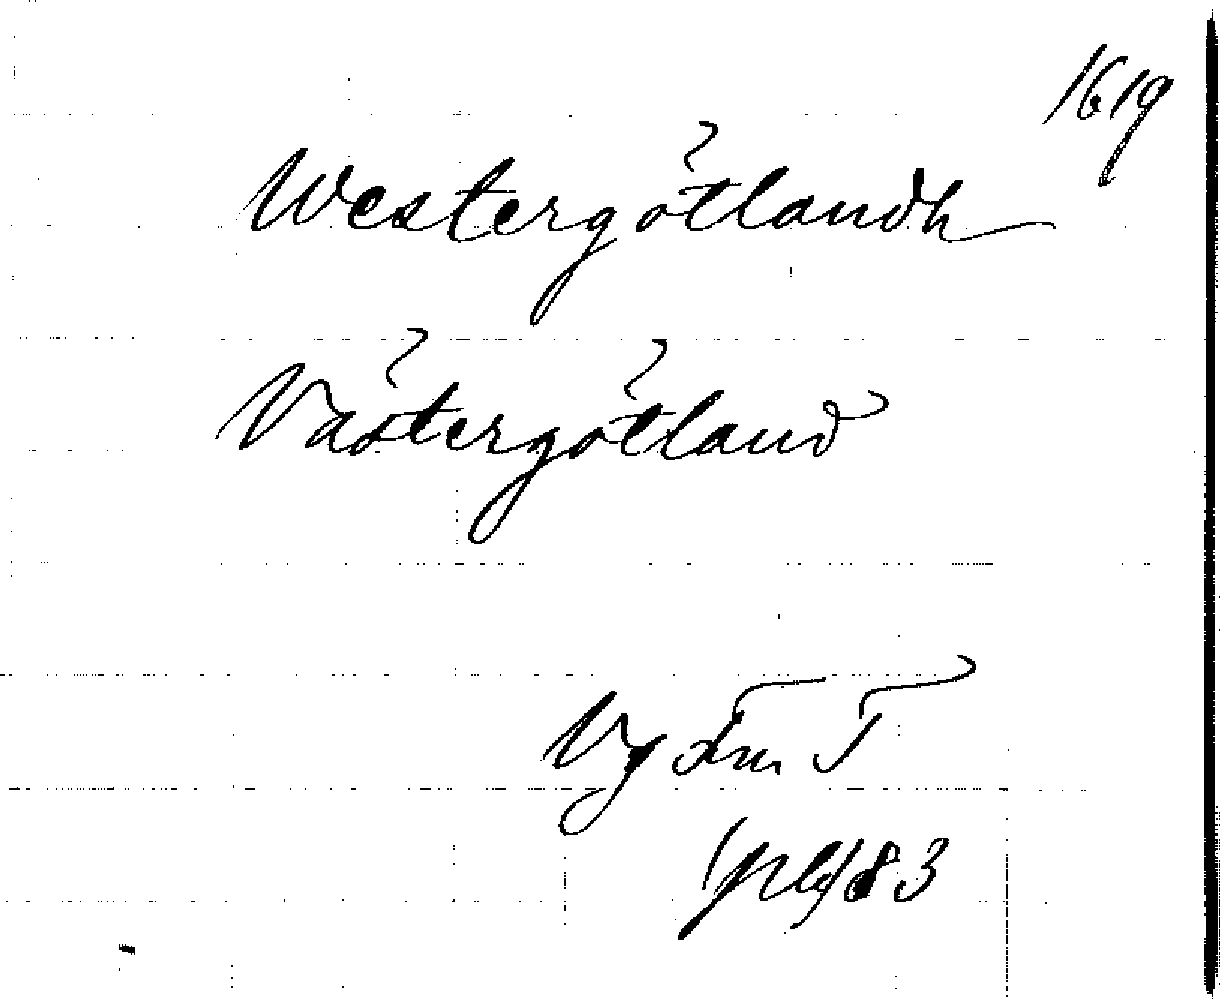 1619
Westergötlandh
Västergötland
Vg
83